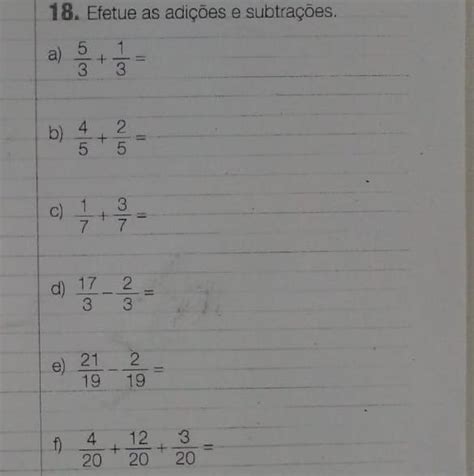 18. Efetue as adições e subtrações.
a) 5/3 + 1/3 =
b) 4/5 + 2/5 =
c) 1/7 + 3/7 =
d) 17/3 − 2/3 =
e) 21/19 − 2/19 =
f) 4/20 + 12/20 + 3/20 =